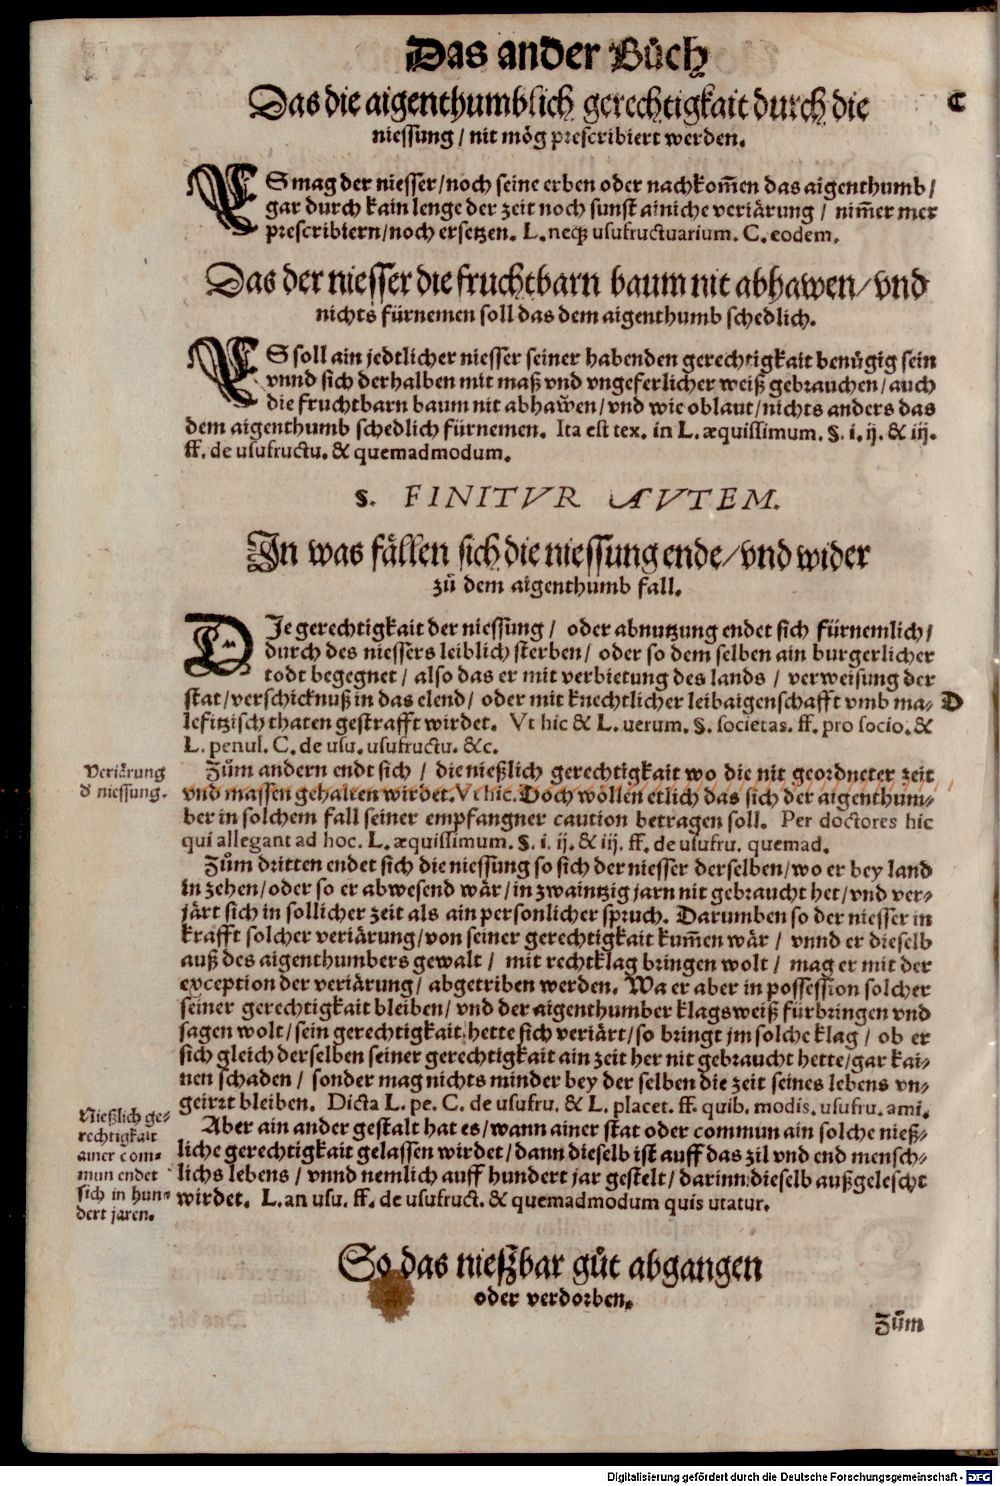 Das ander Bůch
Das die aigenthumblich gerechtigkait durch die
C
niessung / nit mög prescribiert werden.
ES mag der niesser / noch seine erben oder nachkom̃en das aigenthumb /
gar durch kain lenge der zeit noch sunst ainiche veriärung / nim̃er mer
prescribiern / noch ersetzen. L. neqȝ usufructuarium. C. eodem.
Das der niesser die fruchtbarn baum nit abhawen / vnd
nichts fürnemen soll das dem aigenthumb schedlich.
ES soll ain jedtlicher niesser seiner habenden gerechtigkait benůgig sein
vnnd sich derhalben mit maß vnd vngeferlicher weiß gebrauchen / auch
die fruchtbarn baum nit abhaw̃en / vnd wie oblaut / nichts anders das
dem aigenthumb schedlich fürnemen. Ita est tex. in L. æquissimum. §. i. ij. & iij.
ff. de usufructu. & quemadmodum.
§. FINITVR AVTEM.
In was fällen sich die niessung ende / vnd wider
zů dem aigenthumb fall.
DJe gerechtigkait der niessung / oder abnutzung endet sich fürnemlich /
durch des niessers leiblich sterben / oder so dem selben ain burgerlicher
todt begegnet / also das er mit verbietung des lands / verweisung der
stat / verschicknuß in das elend / oder mit knechtlicher leibaigenschafft vmb ma-
D
lefitzisch thaten gestrafft wirdet. Vt hic & L. uerum. §. societas. ff. pro socio. &
L. penul. C. de usu. usufructu. &c.
Veriärung
d niessung.
Zům andern endt sich / die nießlich gerechtigkait wo die nit geordneter zeit
vnd massen gehalten wirdet. Vt hic. Doch wöllen etlich das sich der aigenthum-
ber in solchem fall seiner empfangner caution betragen soll. Per doctores hic
qui allegant ad hoc. L. æquissimum. §. i. ij. & iij. ff. de usufru. quemad.
Zům dritten endet sich die niessung so sich der niesser derselben / wo er bey land
in zehen / oder so er abwesend wär / in zwaintzig jarn nit gebraucht het / vnd ver-
järt sich in sollicher zeit als ain personlicher spruch. Darumben so der niesser in
krafft solcher veriärung / von seiner gerechtigkait kum̃en wär / vnnd er dieselb
auß des aigenthumbers gewalt / mit rechtklag bringen wolt / mag er mit der
exception der veriärung / abgetriben werden. Wa er aber in possession solcher
seiner gerechtigkait bleiben / vnd der aigenthumber klagsweiß fürbringen vnd
sagen wolt / sein gerechtigkait hette sich veriärt / so bringt jm solche klag / ob er
sich gleich derselben seiner gerechtigkait ain zeit her nit gebraucht hette / gar kai-
nen schaden / sonder mag nichts minder bey der selben die zeit seines lebens vn-
geirrt bleiben. Dicta L. pe. C. de usufru. & L. placet. ff. quib. modis. usufru. ami.
Nießlich ge-
rechtigkait
ainer com-
mun endet
sich in hun-
dert jaren.
Aber ain ander gestalt hat es / wann ainer stat oder commun ain solche nieß-
liche gerechtigkait gelassen wirdet / dann dieselb ist auff das zil vnd end mensch-
lichs lebens / vnnd nemlich auff hundert jar gestelt / darinn dieselb außgelescht
wirdet. L. an usu. ff. de usufruct. & quemadmodum quis utatur.
So das nießbar gůt abgangen
oder verdorben.
Zům
Digitalisierung gefördert durch die Deutsche Forschungsgemeinschaft - DFG